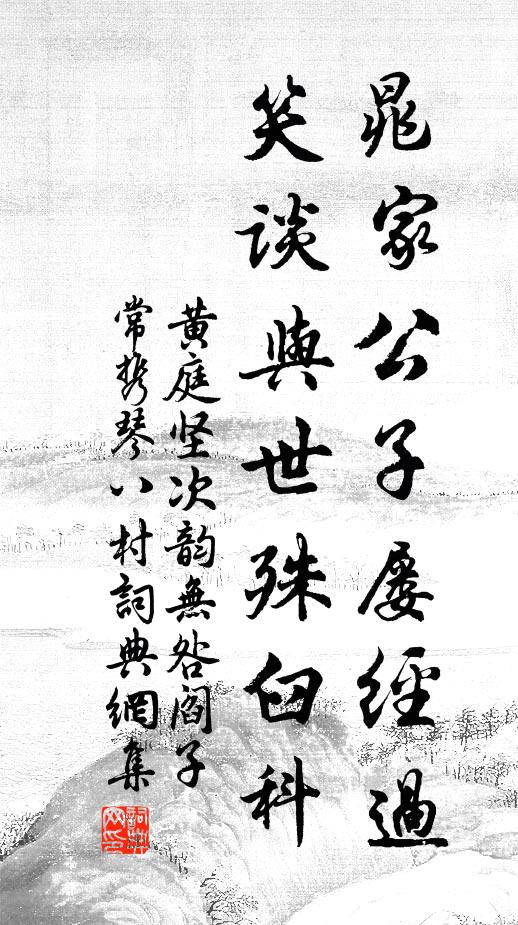 晁家公子屡經過
笑談與世殊臼科
黄庭坚次韵無咎阎子
常携琴八村詞典網集